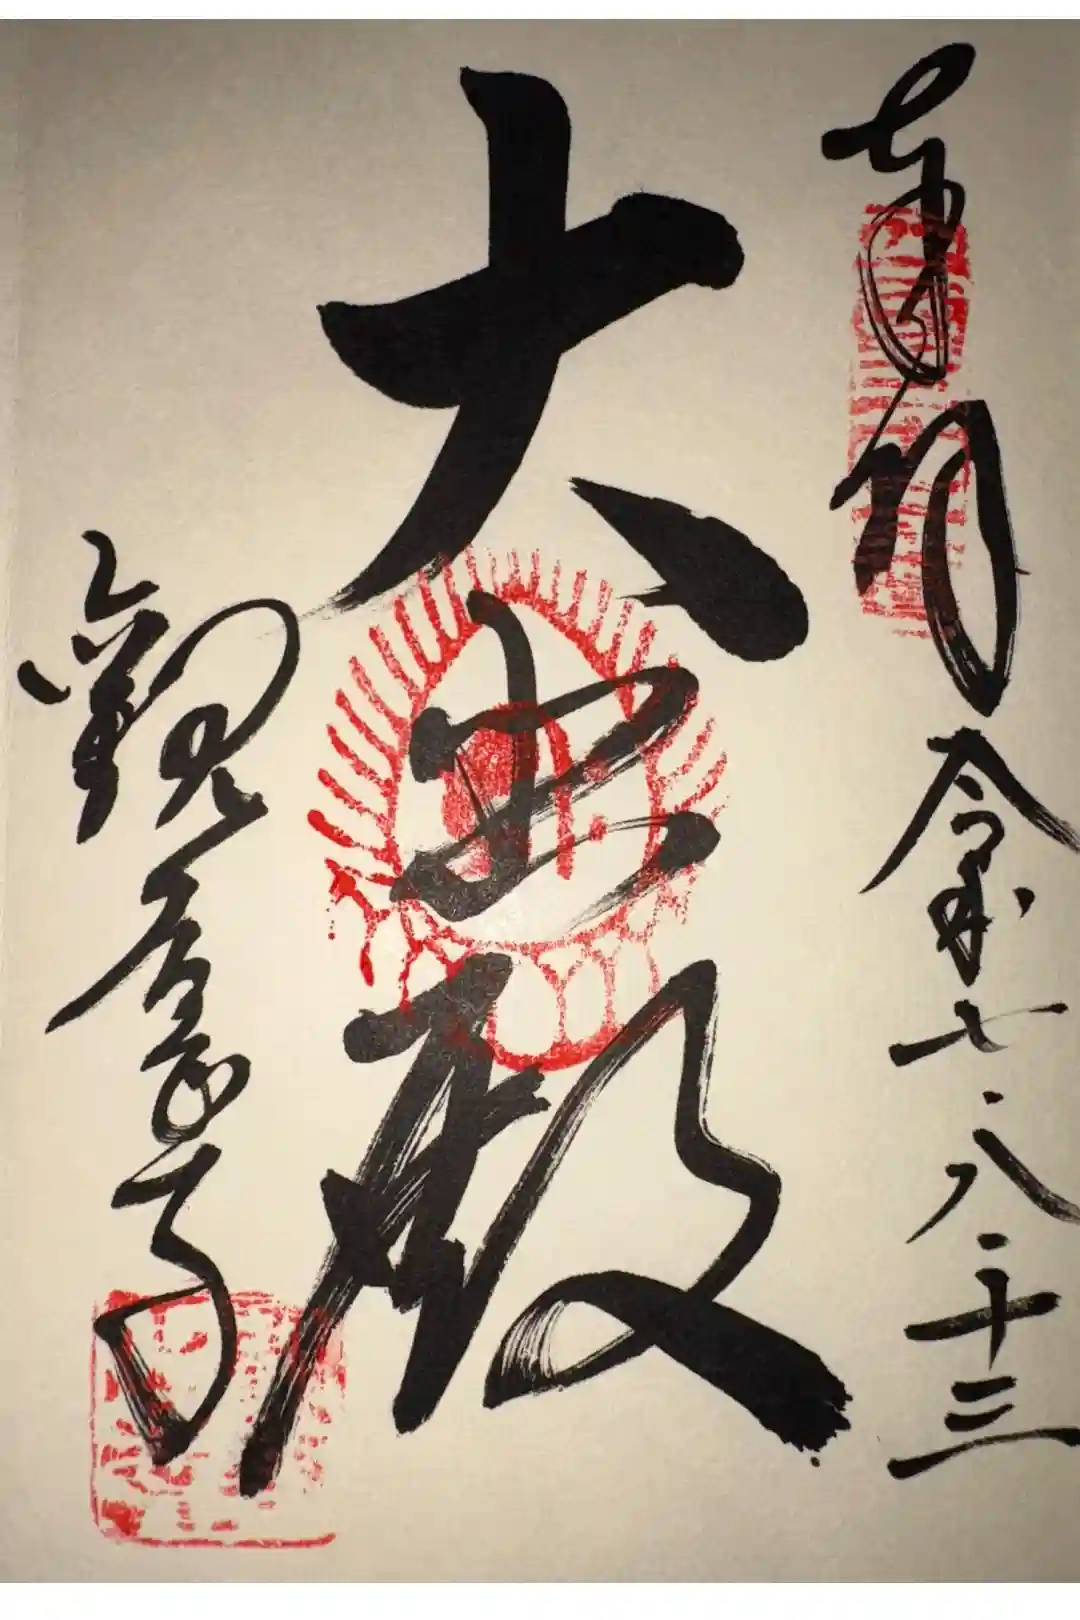 奉拝 令和七・八・十三
大悲殿
觀音寺